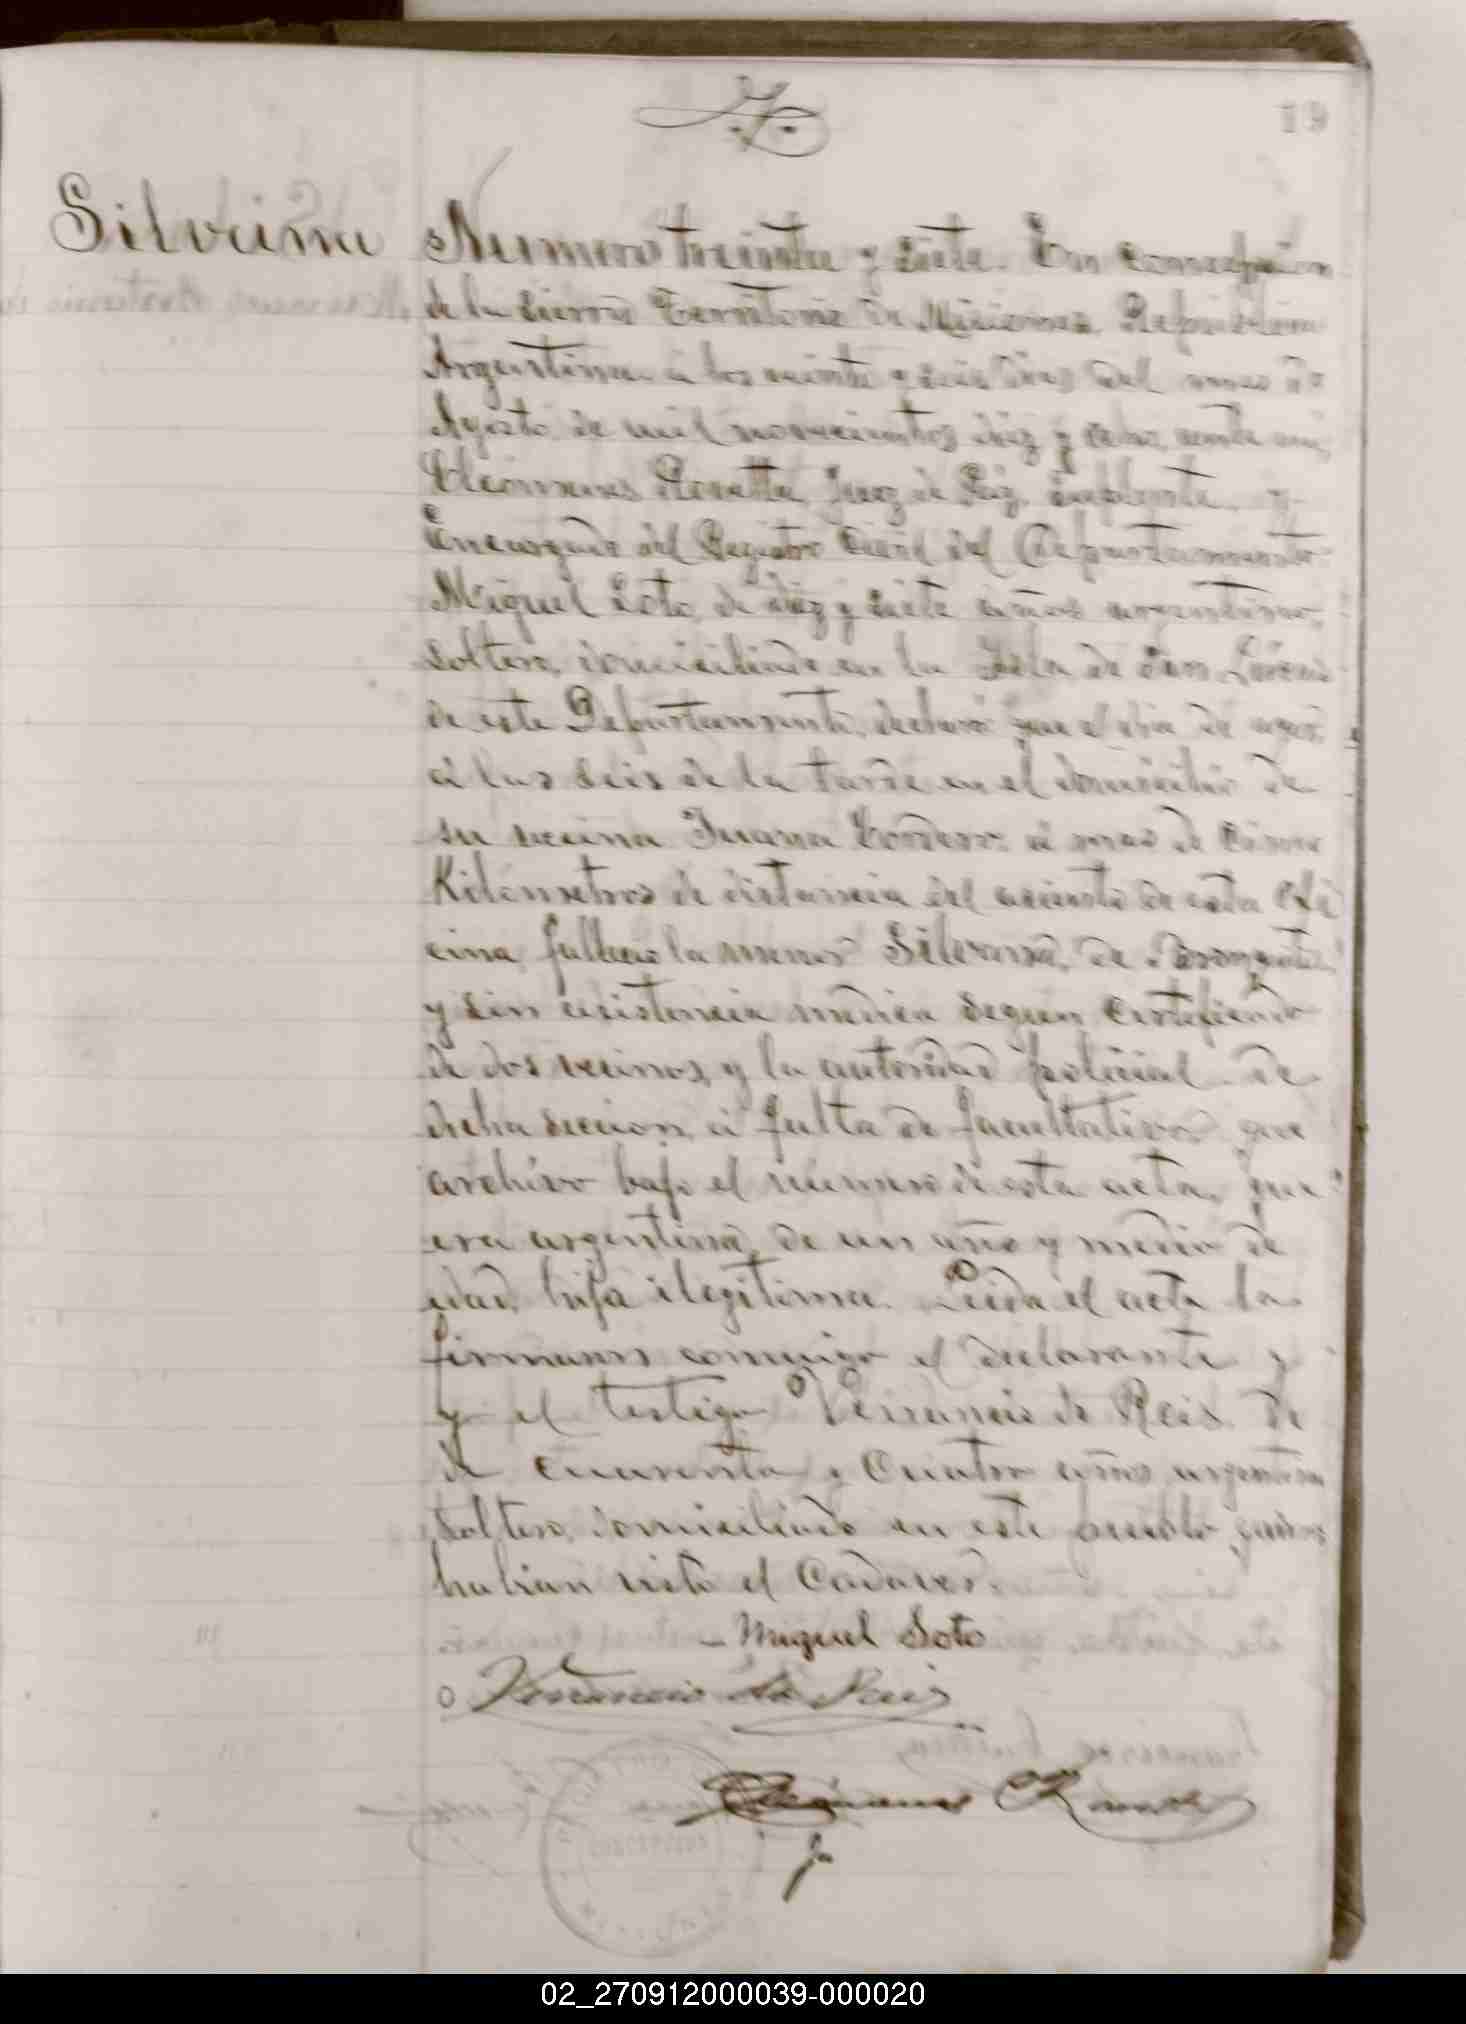 19
Silveriana
Numero treinta y siete. En Concepcion
de la Sierra Territorio de Misiones Republica
Argentina á los veinte y seis dias del mes de
Agosto de mil novecientos diez y ocho, ante mi,
Cleómenes Juez de Paz Suplente y
Encargado del Registro Civil del Departamento
Miguel Soto, de diez y siete años argentino,
soltero, domiciliado en la Isla de San
de este Departamento, declaró que el dia de ayer
á las seis de la tarde en el domicilio de
su vecina Juana Cordero á mas de cinco
Kilómetros de distancia del asiento de esta Ofi
cina, fallecio la menor de
y sin asistencia medica segun certificado
de dos vecinos, y la autoridad policial de
dicha seccion, á falta de facultativos que
archivo bajo el numero de esta acta, que
era argentina, de un año y medio de
edad, hija ilegitima. Leida el acta la
firmaron conmigo el declarante y
y el testigo Venancio de Reis de
de cuarenta y cuatro años argentino
soltero, domiciliado en este pueblo quienes
habian visto el Cadaver.
Miguel Soto
Venancio de Reis
Cleómenes
02_270912000039-000020